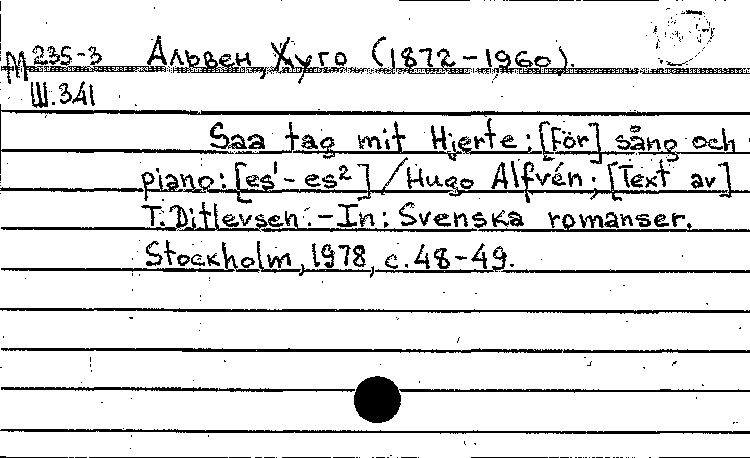 М 235-3 Альвен, Хуго (1872-1960).
Ш.341
Saa tag mit Hjerte: [För] sång och
piano: [es¹-es²] / Hugo Alfvén; [Text av]
T. Ditlevsen. - In: Svenska romanser.
Stockholm, 1978, с. 48-49.